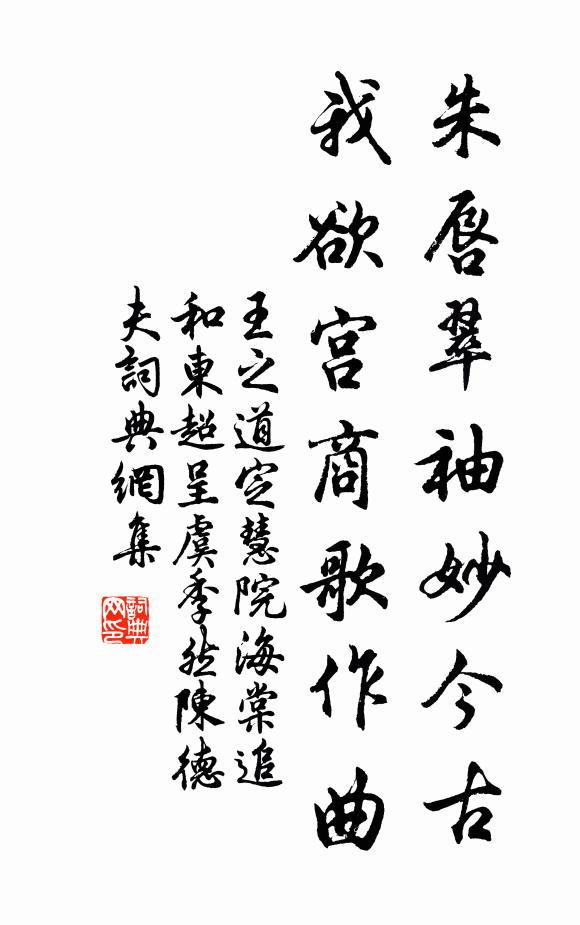 朱唇翠袖妙今古
我欲宮商歌作曲
王之道定慧院海棠追
和東超呈虞季然陳德
夫詞典網集
詞典
网印